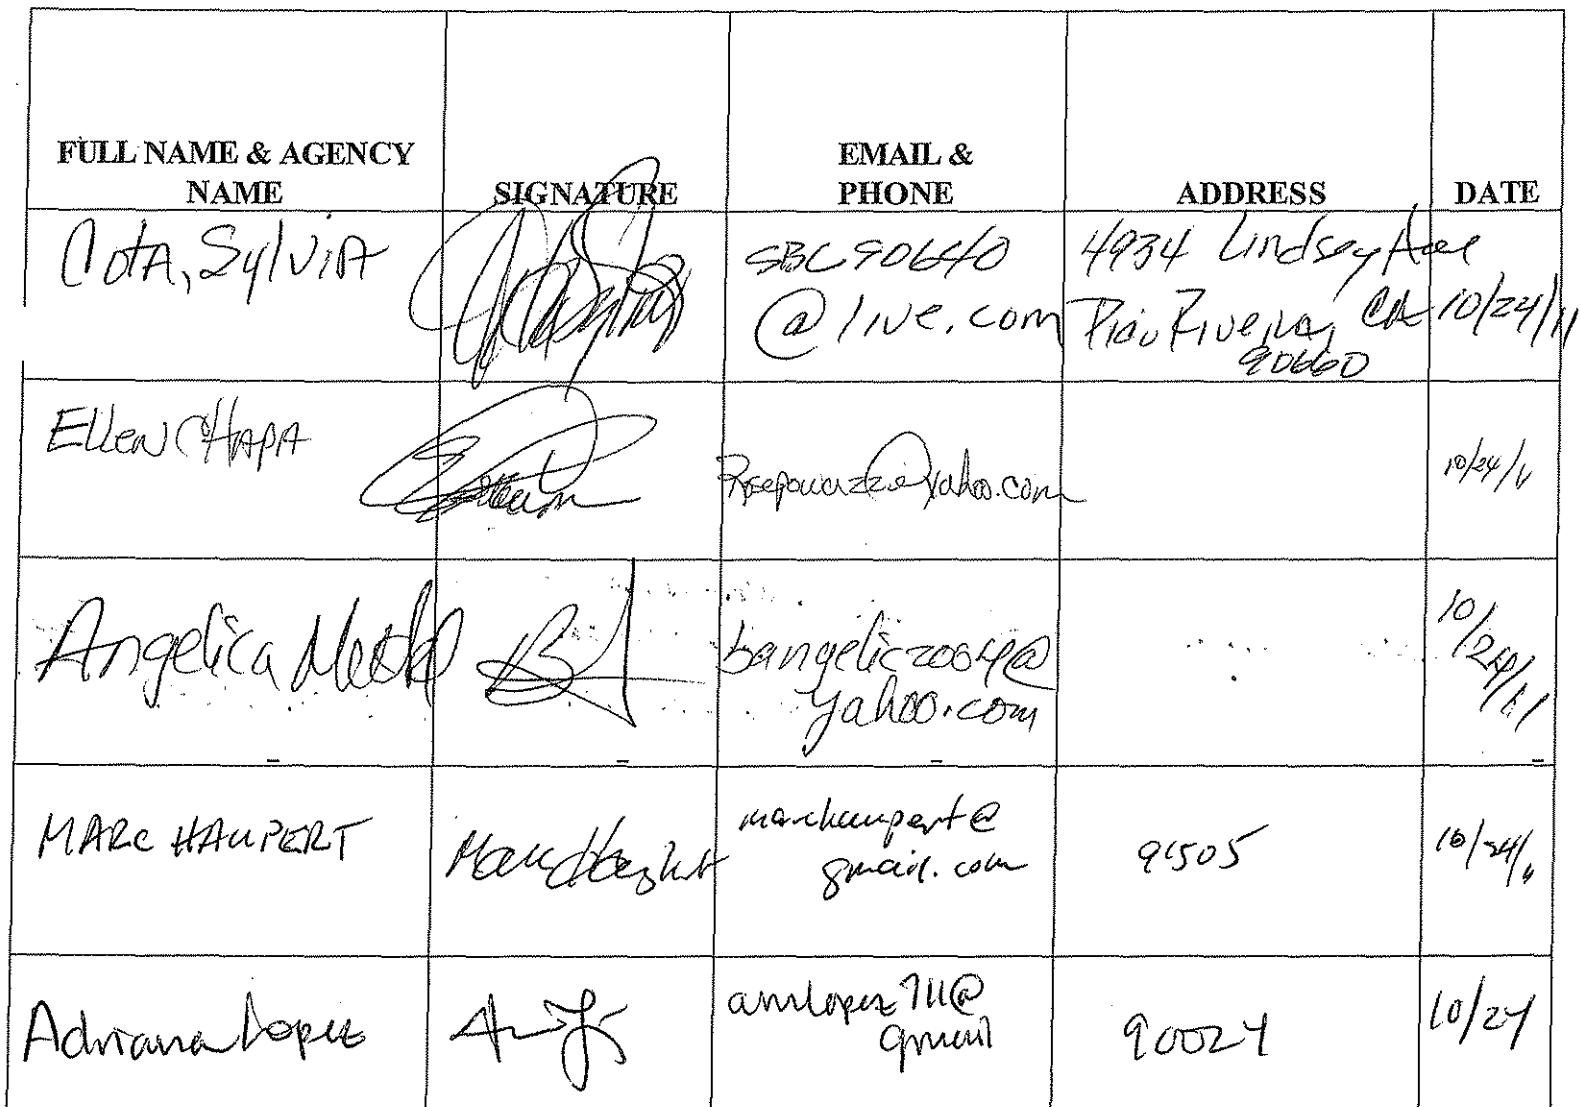 FULL NAME & AGENCY
NAME
SIGNATURE
EMAIL &
PHONE
ADDRESS
DATE
CotA, SylviA
SBC90640
@live.com
4934 Lindsey Ave
Pico Rivera, CA
90660
10/24/11
Ellen CHAPA
@yahoo.com
10/24/11
Angelica
bangelic2004@
yahoo.com
10/24/11
MARC HAUPERT
marchaupert@
gmail.com
91505
10/24/11
Adriana Lopez
amlopez711@
gmail
90024
10/24